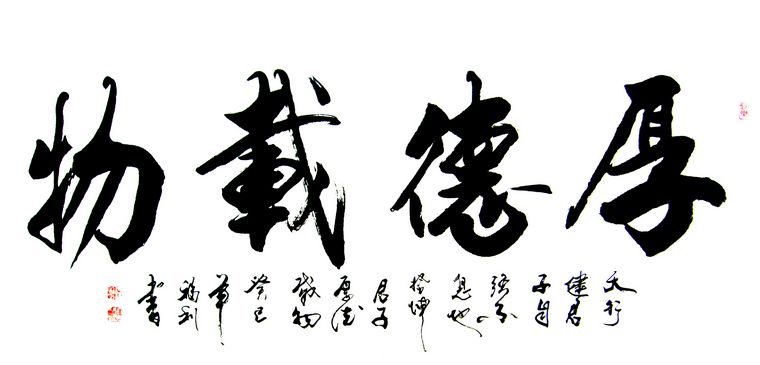 厚德載物
天行
健君
子自
强不
息地
勢坤
君子
厚德
載物
癸巳
書